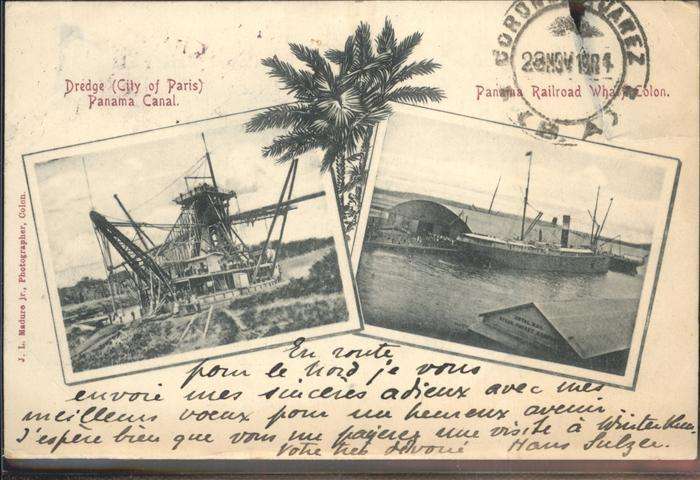 Dredge (City of Paris)
Panama Canal.
Panama Railroad Wharf Colon.
28 NOV 1904
J. L. Maduro jr., Photographer, Colon.
En route
pour le Nord je vous
envoie mes sincères adieux avec mes
meilleurs voeux pour un heureux avenir.
J'espère bien que vous me payerez une visite à Winterthur.
Votre très dévoué Hans Sulzer.